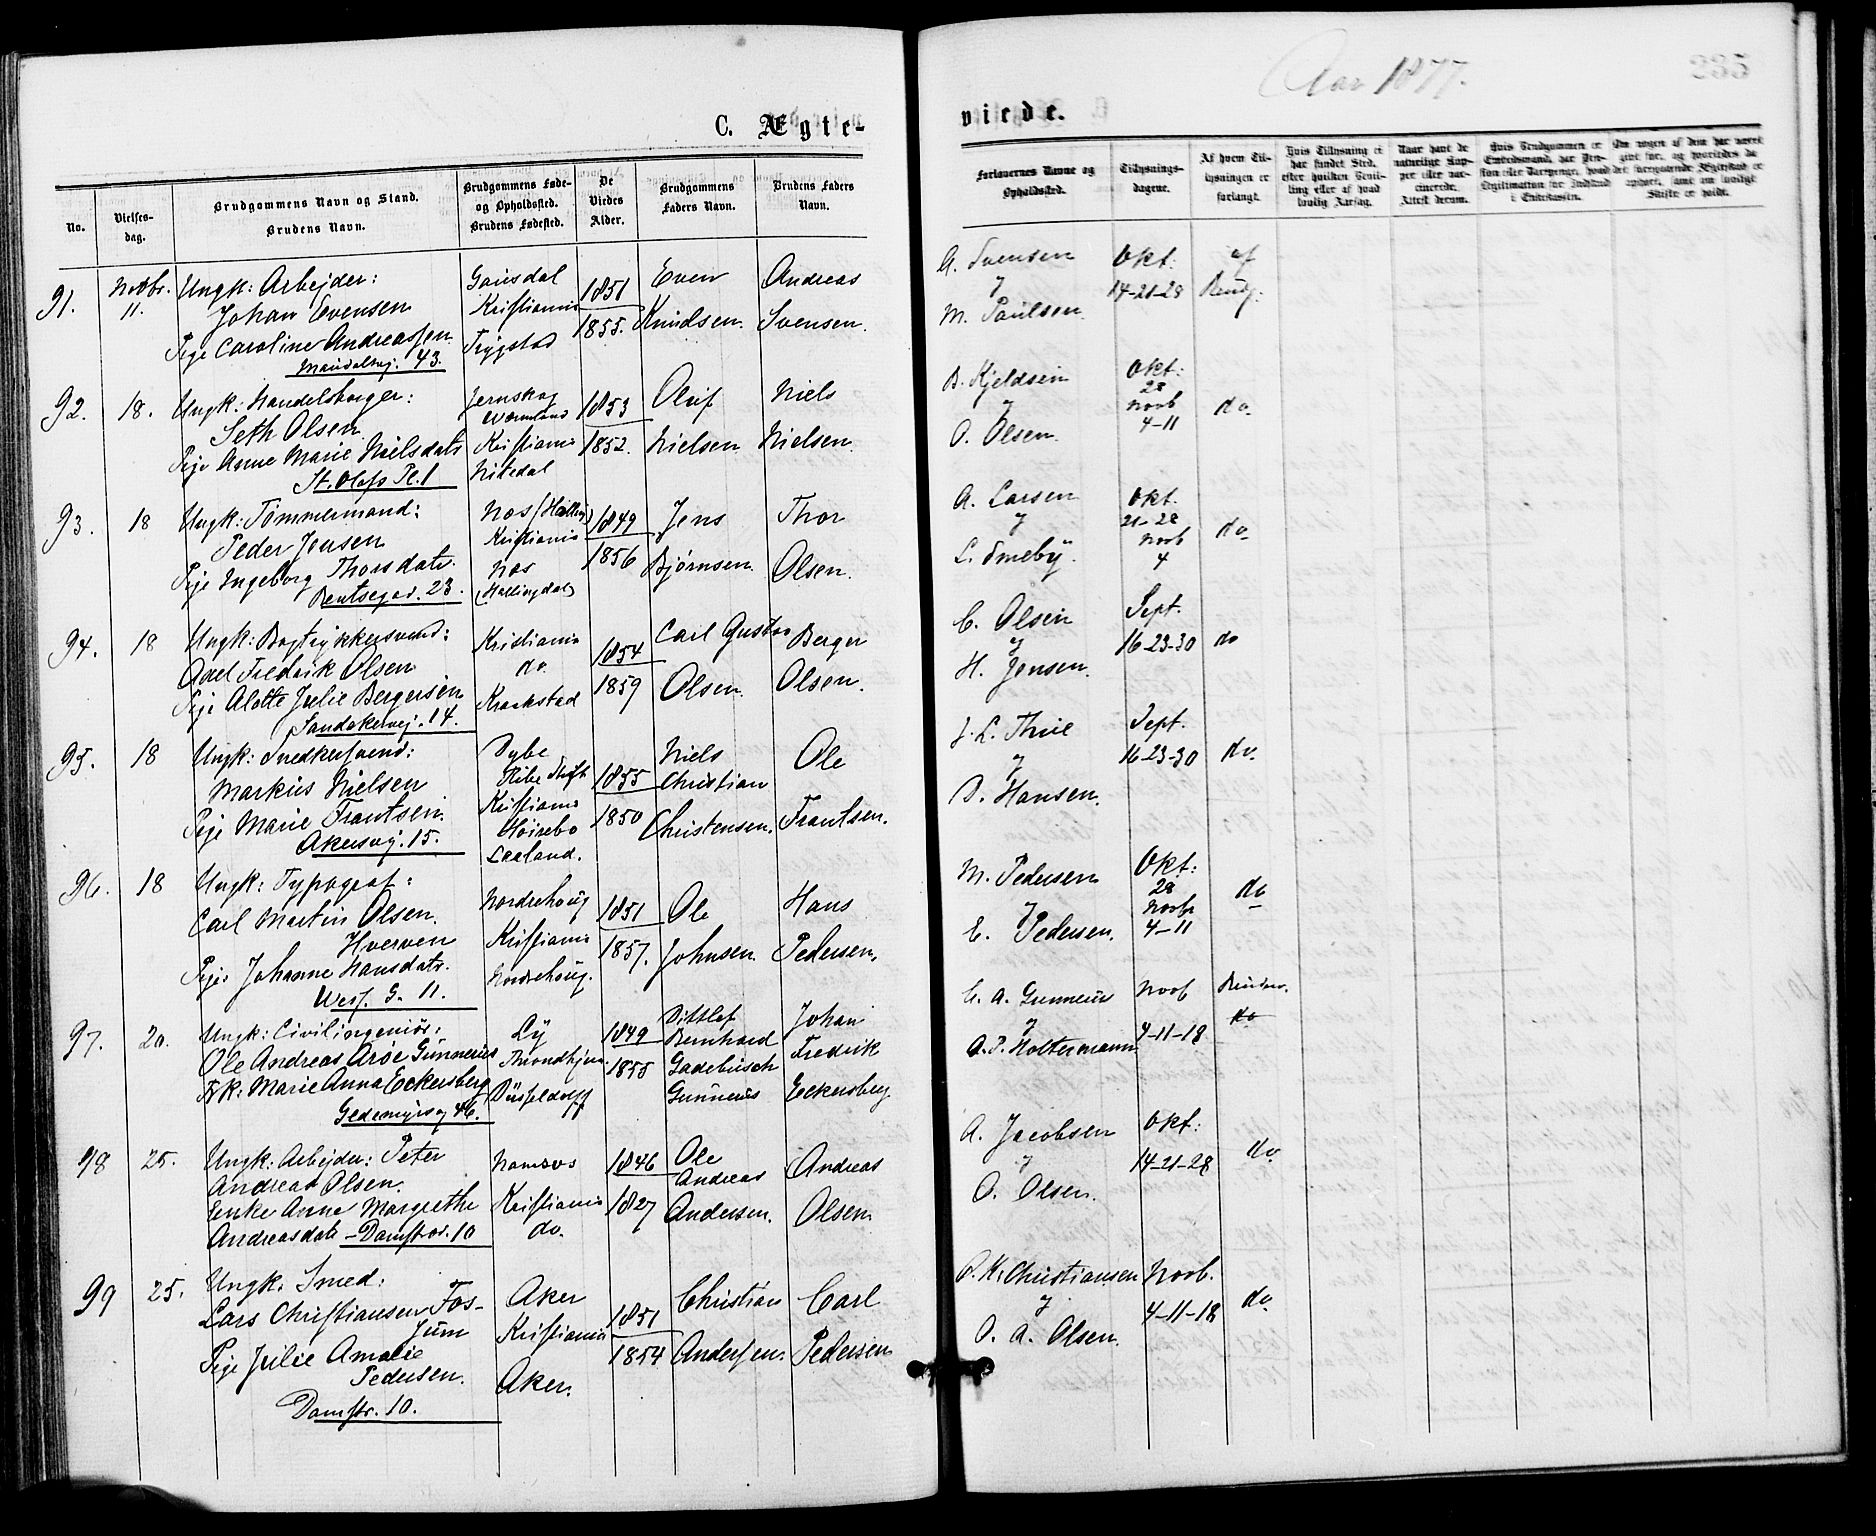 Aar 1877.
235
C. Ægte-
viede.
No.
Vielses-
dag.
Brudgommens Navn og Stand.
Brudens Navn.
Brudgommens Føde-
og Opholdssted.
Brudens Fødested.
De
Viedes
Alder.
Brudgommens
Faders Navn.
Brudens Faders
Navn.
Forlovernes Navne og
Opholdssted.
Tillysnings-
dagene.
Af hvem Til-
lysningen er
forlangt.
Hvis Tillysning ei
har fundet Sted,
efter hvilken Bevil-
ling eller af hvad
lovlig Aarsag.
Naar havt de
naturlige Kop-
per eller vac-
cinerede.
Attest derom.
91.
Novbr.
11.
Ungk: Arbejder:
Johan Evensen
Pige Caroline Andreassen
43.
Gausdal
Kristiania
Trygstad
1851
1855.
Even
Knudsen.
Andreas
Svensen.
A. Svensen
y
M. Paulsen.
Okt:
14-21-28
af
Brudg:
92.
18.
Ungk: Handelsborger:
Seth Olsen
Pige Anne Marie Nielsdatr
St. Olafs Pl. 1
Jernskog
Wermland
Kristiania
Nitedal
1853
1852.
Oluf
Nielsen
Niels
Nielsen.
B. Kjeldsen
y
O. Olsen.
Okt:
28
Novb
4-11
do.
93.
18
Ungk: Tømmermand:
Peder Jensen
Pige Ingeborg Thorsdatr.
Bentsegad. 23.
Næs (Halling)
Kristiania
Næs
(Hallingdal)
1849
1856
Jens
Bjørnsen.
Thor
Olsen.
A. Larsen
y
L. Smeby.
Okt.
21-28
Novb
4
do
94.
18
Ungk: Bogtrykkersvend:
Axel Fredrik Olsen
Pige Alette Julie Bergersen
Sandakervej. 14.
Kristiania
do.
Kraakstad
1854
1859
Carl Gustav
Olsen.
Berger
Olsen.
C. Olsen
y
H. Jensen.
Sept.
16-23-30
do
95.
18
Ungk: Snedkersvend:
Markus Nielsen
Pige Marie Frantsen.
Akersvej. 15.
Dybe
Ribe Stift
Kristiania
Høirebo
Laaland.
1855
1850
Niels
Christian
Christensen.
Ole
Frantsen.
J. L. Thue
y
O. Hansen.
Sept.
16-23-30
do.
96.
18
Ungk: Typograf:
Carl Martin Olsen
Hverven
Pige Johanne Hansdatr.
Wess. G. 11.
Nordrehoug
Kristiania
Nordrehoug.
1851
1857.
Ole
Johnsen.
Hans
Pedersen.
M. Pedersen
y
E. Pedersen.
Okt:
28
Novb
4-11
do
97.
20.
Ungk: Civilingeniør:
Ole Andreas Arøe Gunnerius
Frk: Marie Anna Eckersberg
46.
Ly
Throndhjem
Düsseldorff
1849
1855
Ditlef
Bernhard
Gadebusch
Gunnerus
Johan
Fredrik
Eckersberg.
E. A. Gunnerus
y
A. P. Holtermann
Novb
4-11-18
do
98
25.
Ungk: Arbejder: Peter
Andreas Olsen.
Enke Anne Margrethe
Andreasdatr – Damstræd. 10
Namsos
Kristiania
do.
1846
1827
Ole
Andreas
Andersen.
Andreas
Olsen
A. Jacobsen
y
O. Olsen.
Okt:
14-21-28
do.
99
25.
Ungk. Smed:
Lars Christiansen Fos-
sum
Pige Julie Amalie
Pedersen.
Damstr. 10.
Aker
Kristiania
Aker.
1851
1854
Christian
Andersen.
Carl
Pedersen
P. K. Christiansen
y
O. A. Olsen.
Novb.
4-11-18
do.